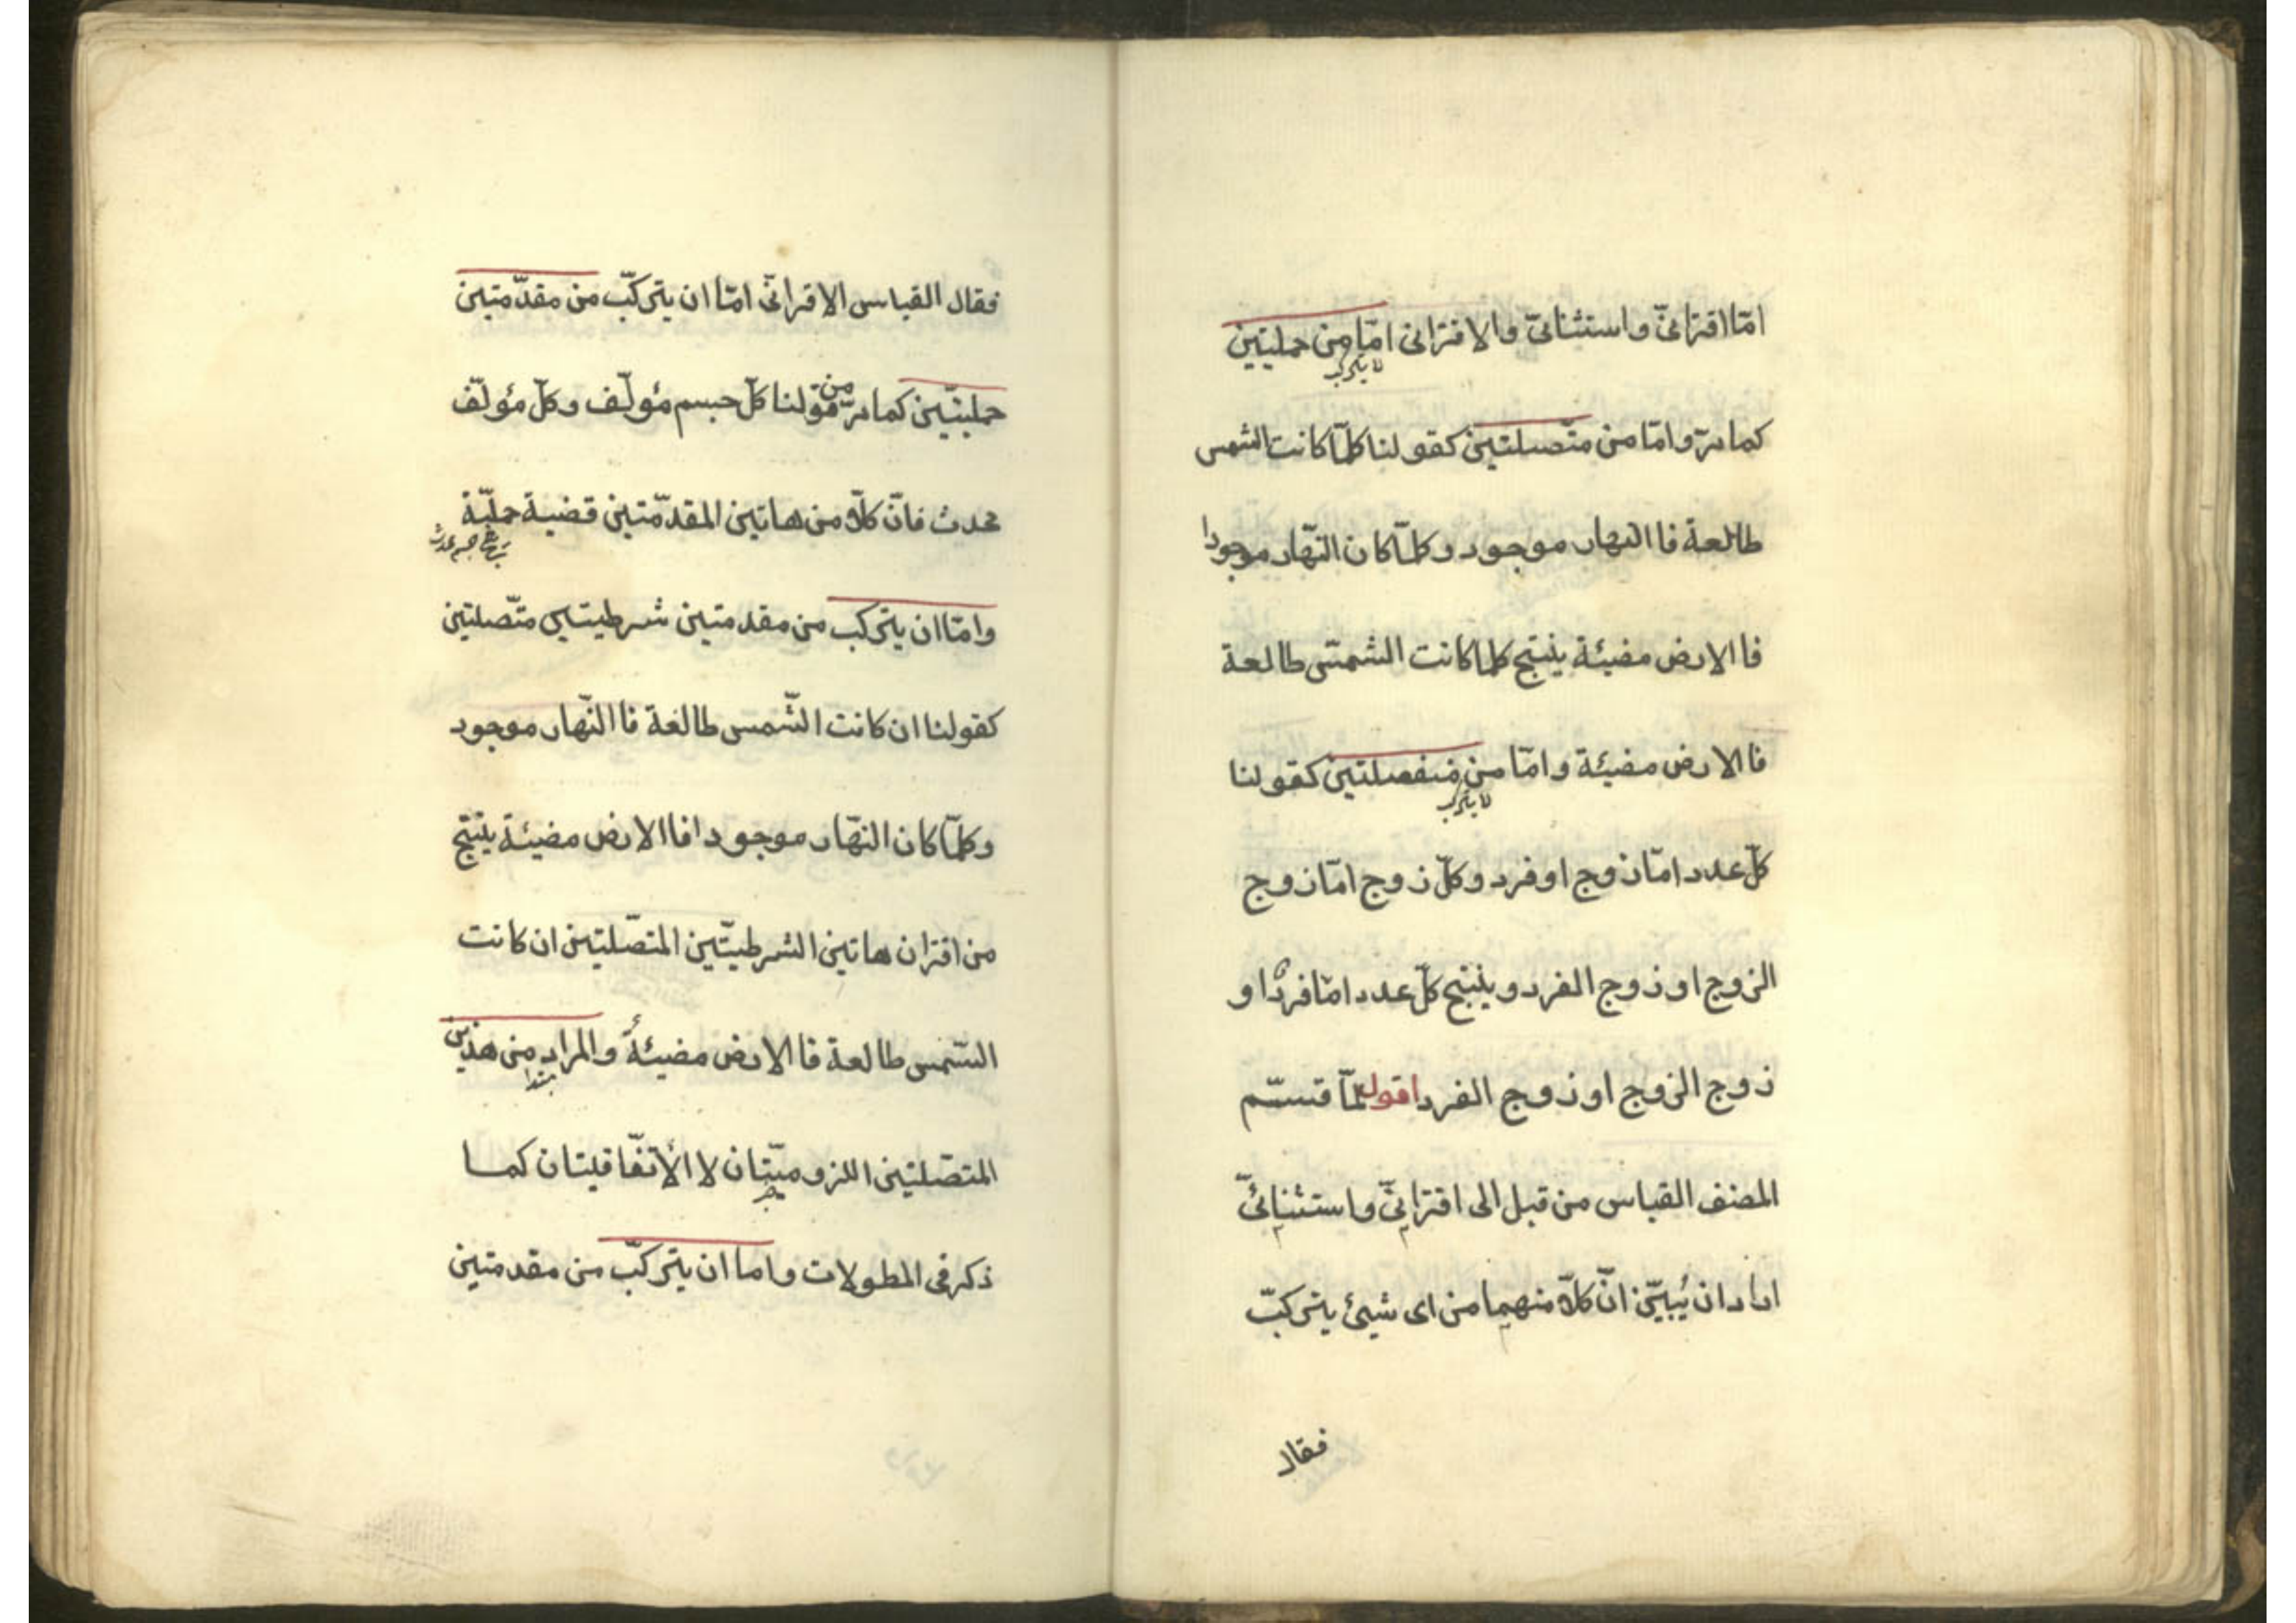 امّا اقترانىّ واستثنائىّ والاقترانى امّا من حمليتين
لا يتركب
كما مرّ وامّا من متّصلتين كقولنا كلّما كانت الشمس
طالعة فا النهار موجود وكلّما كان النّهار موجودا
فا الارض مضيئة ينتج كلما كانت الشمس طالعة
فا الارض مضيئة وامّا من منفصلتين كقولنا
لا يتركب
كلّ عدد امّا زوج او فرد وكلّ زوج امّا زوج
الزوج او زوج الفرد وينتج كلّ عدد امّا فردٌ او
زوج الزوج او زوج الفرد اقول لمّا قسّم
المصنف القياس من قبل الى اقترانىّ واستثنائىّ
اراد ان يُبيّن انّ كلاّ منهما من اى شيئ يتركبّ
فقال
فقال القياس الاقترانىّ امّا ان يتركبّ من مقدّمتين
حمليتيّن كما مرّ من قولنا كلّ جسم مؤلّف وكلّ مؤلّف
محدث فانّ كلاّ من هاتين المقدّمتين قضية حمليّة
وامّا ان يتركب من مقدمتين شرطيتين متّصلتين
كقولنا ان كانت الشّمس طالعة فا النّهار موجود
وكلّما كان النهّار موجودا فا الارض مضيئة ينتج
من اقتران هاتين الشرطيتّين المتصّلتين ان كانت
الشمس طالعة فا الارض مضيئةٌ والمراد من هذين
مبتدا
المتصّلتين اللزوميّتان لا الأتفّاقيتان كما
خبر
ذكر فى المطولات واما ان يتركبّ من مقدمتين